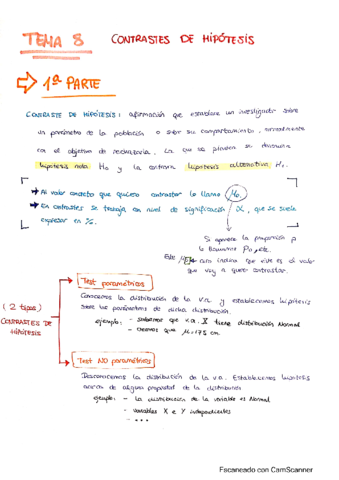 TEMA 8 CONTRASTES DE HIPÓTESIS
1ª PARTE
CONTRASTE DE HIPÓTESIS: afirmación que establece un investigador sobre
un parámetro de la población o sobre su comportamiento, normalmente
con el objetivo de rechazarla. La que se plantea se denomina
hipótesis nula H₀ y la contraria hipótesis alternativa H₁.
→ Al valor concreto que quiero contrastar lo llamo μ₀.
→ En contrastes se trabaja en nivel de significación α, que se suele
expresar en %.
Si aparece la proporción p
lo llamamos p₀, etc.
Este cero indica que este es el valor
que voy a querer contrastar.
Test paramétricos
Conocemos la distribución de la v.a. y establecemos hipótesis
sobre los parámetros de dicha distribución.
(2 tipos)
CONTRASTES DE
HIPÓTESIS
ejemplo: - sabemos que v.a. X tiene distribución Normal
- Creemos que μ=175 cm.
Test NO paramétricos
Desconocemos la distribución de la v.a. Establecemos hipótesis
acerca de alguna propiedad de la distribución.
ejemplo: - la distribución de la variable es Normal
- variables X e Y independientes
- ...
Escaneado con CamScanner